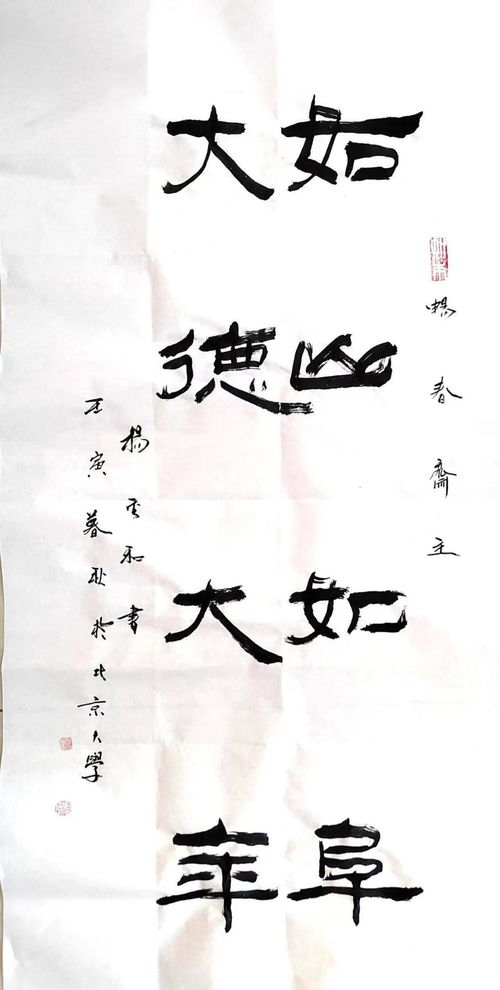 暢春齋主
如山如阜
大德大年
楊和書
壬寅暮秋於北京大學